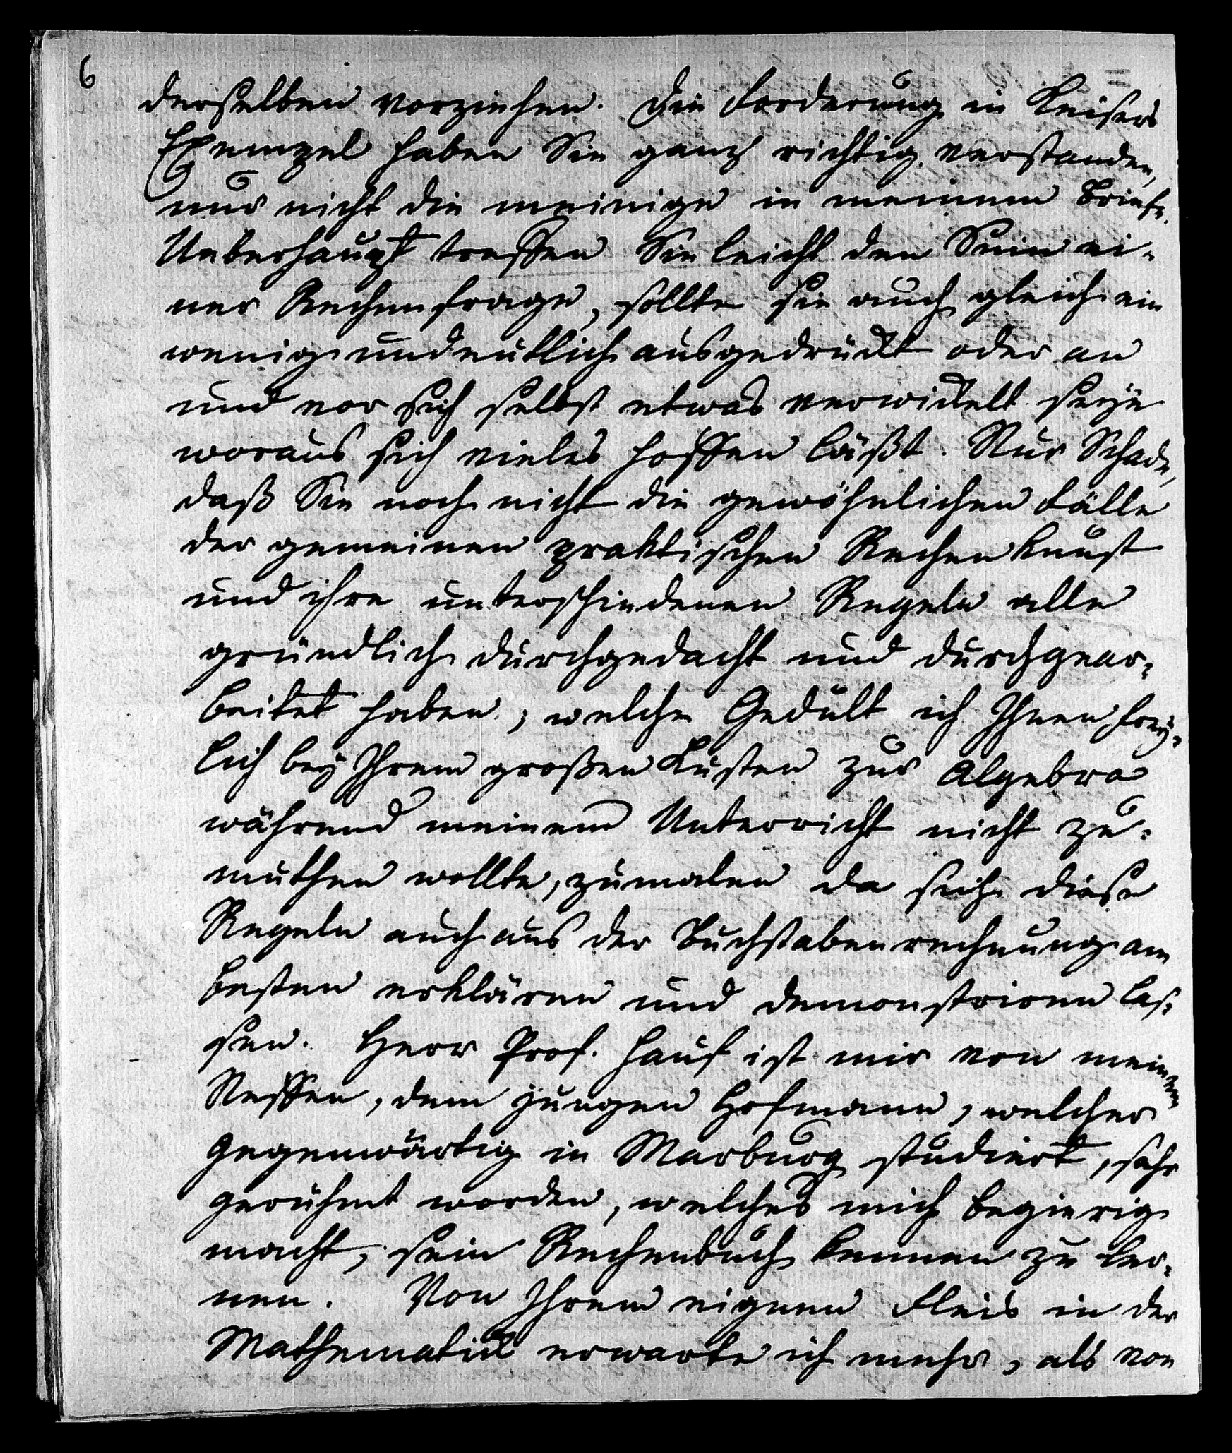 6
derselben vorziehen. Die Forderung in Keisers
Exempel haben Sie ganz richtig verstanden,
nur nicht die meinige in meinem Briefe.
Ueberhaupt treffen Sie leicht den Sinn ei-
ner Rechenfrage, sollte sie auch gleich ein
wenig undeutlich ausgedrückt oder an
und vor sich selbst etwas verwickelt seyn
woraus sich vieles hoffen läßt. Nur Schade,
daß Sie noch nicht die gewöhnlichen Fälle
der gemeinen praktischen Rechenkunst
und ihre unterschiedenen Regeln alle
gründlich durchgedacht und durchgear-
beitet haben, welche Gedult ich Ihnen frey-
lich bey Ihrem großen Lüsten zur Algebra
während meinem Unterricht nicht zu-
muthen wollte, zumalen da sich diese
Regeln auch aus der Buchstabenrechnung am
besten erklären und demonstriren las-
sen. Herr Prof. Hauf ist mir von meinem
Neffen, dem jungen Hofmann, welcher
gegenwärtig in Marburg studiert, sehr
gerühmt worden, welches mich begierig
macht, sein Rechenbuch kennen zu ler-
nen. Von Ihrem eignen Fleis in der
Mathematick erwarte ich mehr, als von